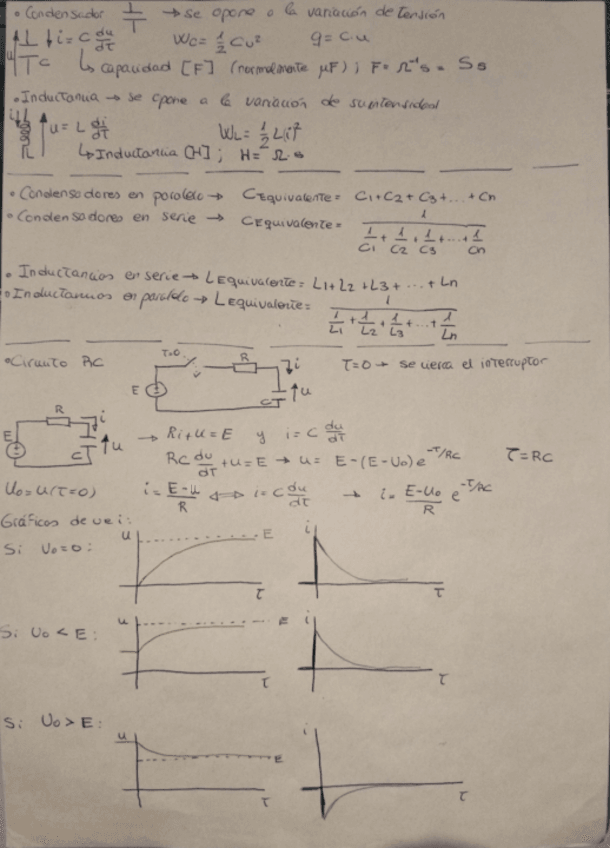 • Condensador → se opone a la variación de tensión
u C ↓i = C du/dt Wc = 1/2 Cu² q = C·u
↳ Capacidad [F] (normalmente μF) ; F = Ω⁻¹s = S s
• Inductancia → se opone a la variación de su intensidad
i↓ u = L di/dt WL = 1/2 L(i)²
↳ Inductancia [H] ; H = Ω·s
• Condensadores en paralelo → C Equivalente = C1 + C2 + C3 + ... + Cn
• Condensadores en serie → C Equivalente = 1 / (1/C1 + 1/C2 + 1/C3 + ... + 1/Cn)
• Inductancias en serie → L Equivalente = L1 + L2 + L3 + ... + Ln
• Inductancias en paralelo → L Equivalente = 1 / (1/L1 + 1/L2 + 1/L3 + ... + 1/Ln)
• Circuito RC T=0 R i E C u T=0 → se cierra el interruptor
R i E C u → Ri + u = E y i = C du/dt
RC du/dτ + u = E → u = E - (E - U0) e^-T/RC τ = RC
U0 = u(T=0) i = (E - u)/R ⟺ i = C du/dτ → i = (E - U0)/R e^-T/RC
Gráficos de u e i:
Si U0 = 0: u E τ i τ
Si U0 < E: u E τ i τ
Si U0 > E: u E τ i τ